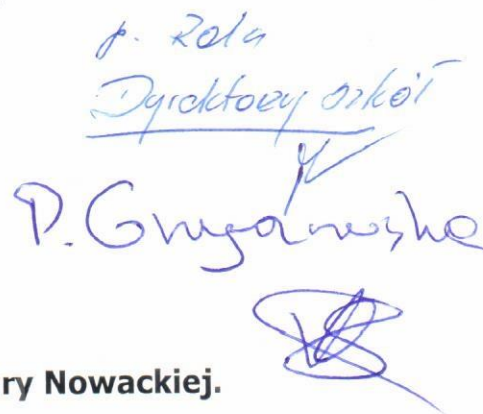 p. Rola
Dyrektorzy szkół
P. Grygorowska
ry Nowackiej.